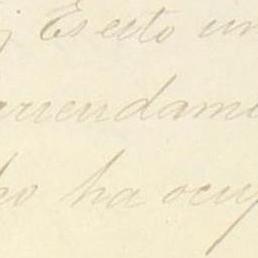 y Es esto un
arrendami
ho ha ocup